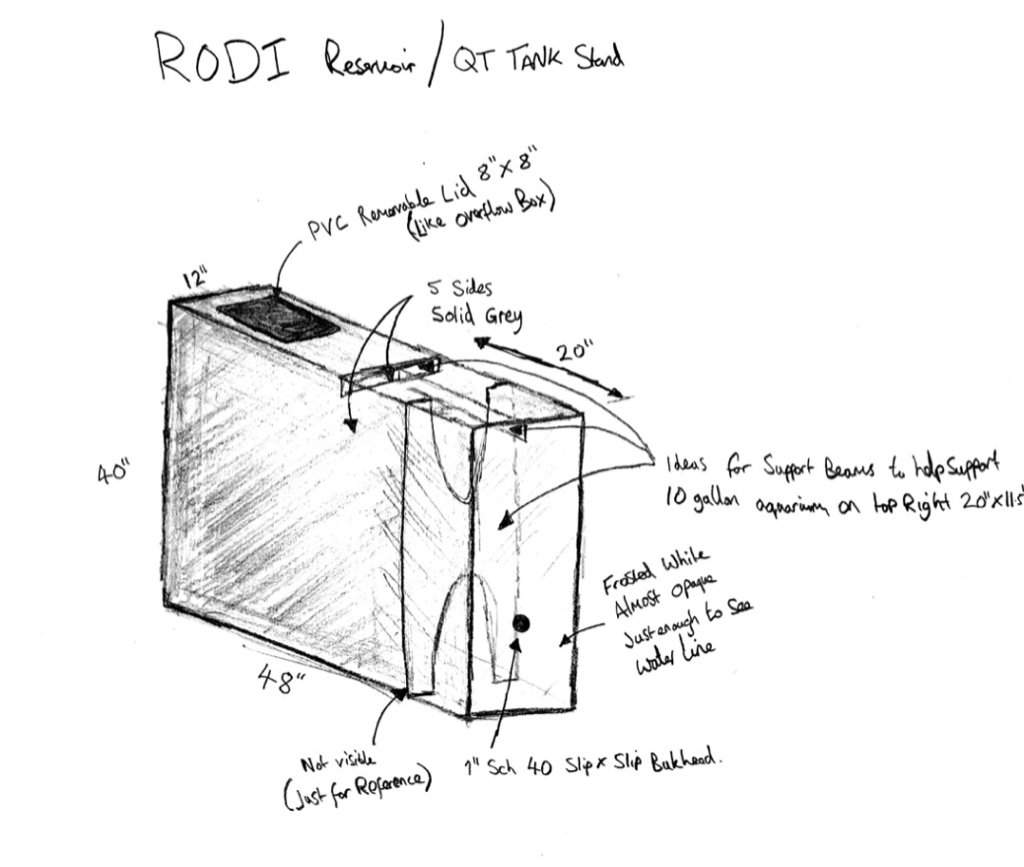 RODI Reservoir / QT TANK Stand
PVC Removable Lid 8"x 8"
(Like Overflow Box)
12"
5 Sides
Solid Grey
20"
40"
Ideas for Support Beams to help Support
10 gallon aquarium on top Right 20"x11.5
Frosted White
Almost opaque
Just enough to See
Water Line
48"
Not visible
(Just for Reference)
1" Sch 40 Slip x Slip Bulkhead.